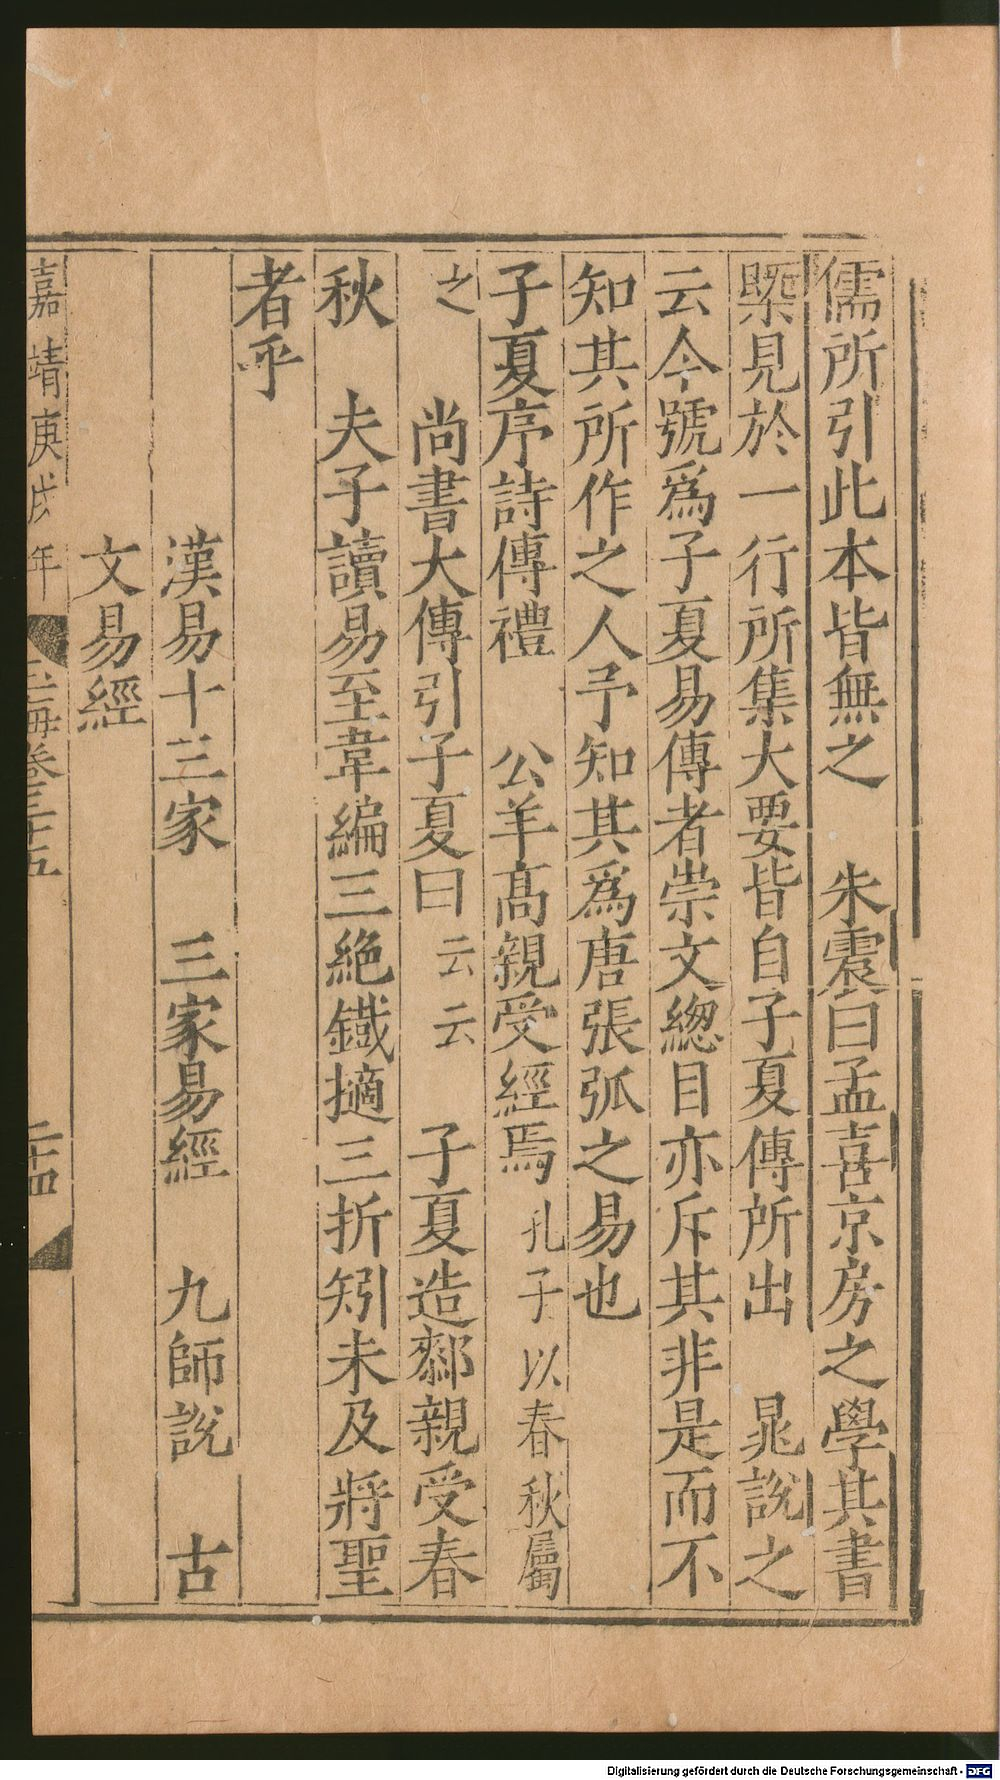 儒所引此本皆無之　朱震曰孟喜京房之學其書
槩見於一行所集大要皆自子夏傳所出　晁說之
云今號爲子夏易傳者崇文總目亦斥其非是而不
知其所作之人予知其爲唐張弧之易也
子夏序詩傳禮　公羊髙親受經焉孔子以春秋屬
之　尚書大傳引子夏曰云云　子夏造厀親受春
秋　夫子讀易至韋編三絶鐵擿三折矧未及將聖
者乎
漢易十三家　三家易經　九師說　古
文易經
嘉靖庚戌年
玉海卷三十五
二十四
Digitalisierung gefördert durch die Deutsche Forschungsgemeinschaft - DFG